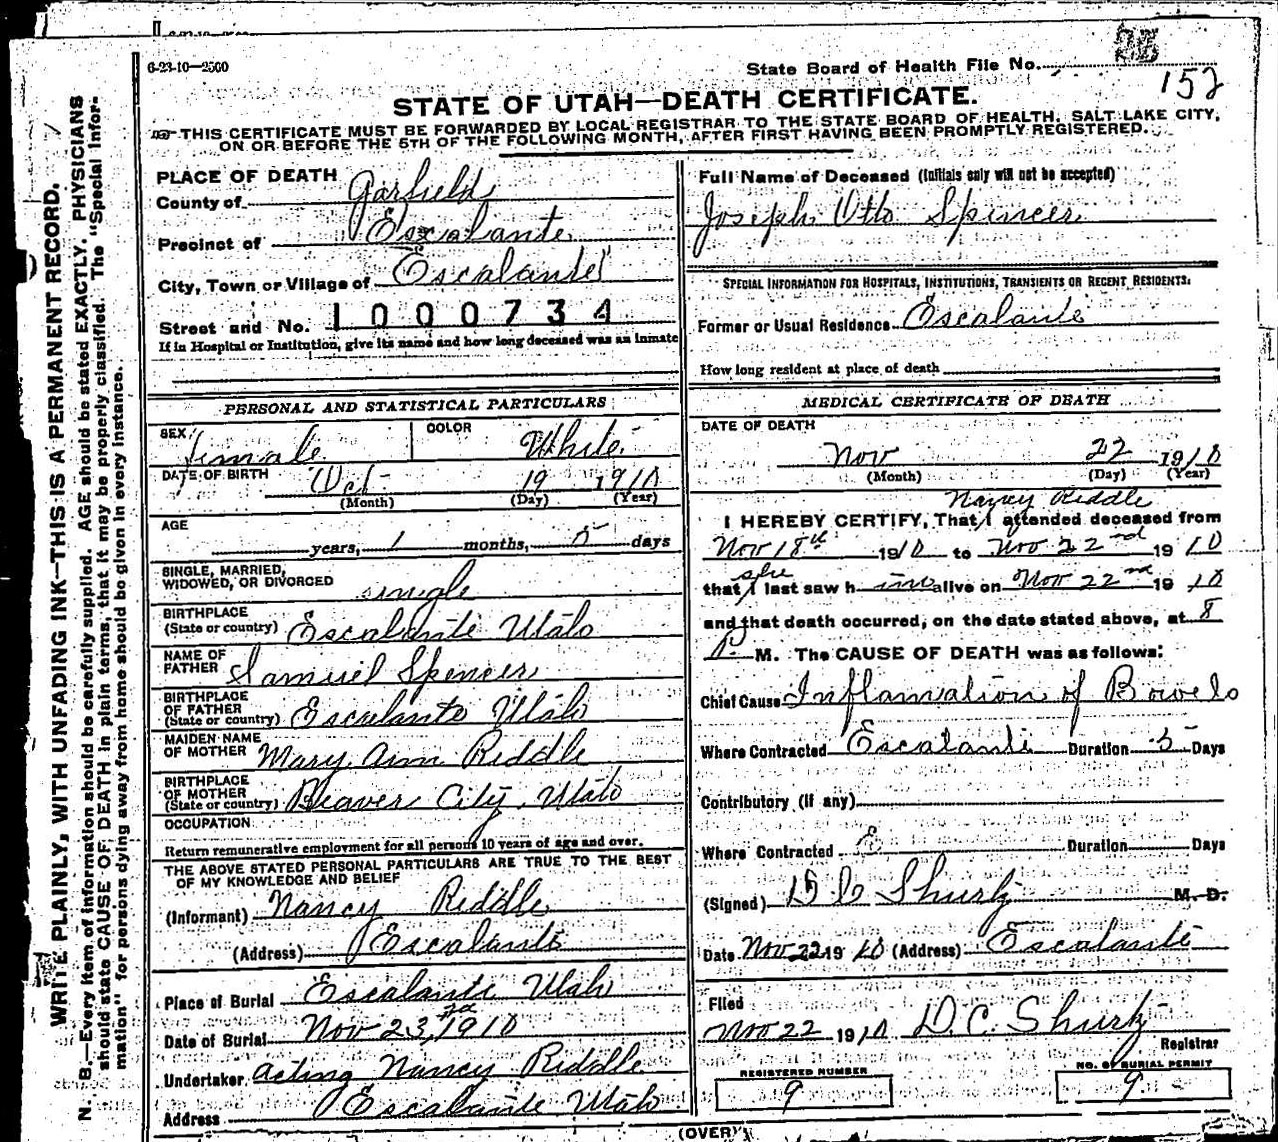 6-23-10—2500
State Board of Health File No.
152
STATE OF UTAH—DEATH CERTIFICATE.
THIS CERTIFICATE MUST BE FORWARDED BY LOCAL REGISTRAR TO THE STATE BOARD OF HEALTH, SALT LAKE CITY,
ON OR BEFORE THE 5TH OF THE FOLLOWING MONTH, AFTER FIRST HAVING BEEN PROMPTLY REGISTERED.
WRITE PLAINLY, WITH UNFADING INK—THIS IS A PERMANENT RECORD.
N. B.—Every item of information should be carefully supplied. AGE should be stated EXACTLY. PHYSICIANS
should state CAUSE OF DEATH in plain terms, that it may be properly classified. The "Special Infor-
mation" for persons dying away from home should be given in every instance.
PLACE OF DEATH
County of Garfield
Precinct of Escalante
City, Town or Village of Escalante
Street and No. 1000734
If in Hospital or Institution, give its name and how long deceased was an inmate
PERSONAL AND STATISTICAL PARTICULARS
SEX Female COLOR White
DATE OF BIRTH Oct 19 1910
(Month) (Day) (Year)
AGE
years, 1 months, 5 days
SINGLE, MARRIED,
WIDOWED, OR DIVORCED single
BIRTHPLACE
(State or country) Escalante Utah
NAME OF
FATHER Samuel Spencer
BIRTHPLACE
OF FATHER
(State or country) Escalante Utah
MAIDEN NAME
OF MOTHER Mary Ann Riddle
BIRTHPLACE
OF MOTHER
(State or country) Beaver City, Utah
OCCUPATION
Return remunerative employment for all persons 10 years of age and over.
THE ABOVE STATED PERSONAL PARTICULARS ARE TRUE TO THE BEST
OF MY KNOWLEDGE AND BELIEF
(Informant) Nancy Riddle
(Address) Escalante
Place of Burial Escalante Utah
Date of Burial Nov 23rd, 1910
Undertaker acting Nancy Riddle
Address Escalante Utah
Full Name of Deceased (Initials only will not be accepted)
Joseph Otto Spencer
SPECIAL INFORMATION FOR HOSPITALS, INSTITUTIONS, TRANSIENTS OR RECENT RESIDENTS:
Former or Usual Residence Escalante
How long resident at place of death
MEDICAL CERTIFICATE OF DEATH
DATE OF DEATH
Nov 22 1910
(Month) (Day) (Year)
Nancy Riddle
I HEREBY CERTIFY, That I attended deceased from
Nov 18th 1910 to Nov 22nd 1910
she
that I last saw h im alive on Nov 22nd 1910
and that death occurred, on the date stated above, at 8
P. M. The CAUSE OF DEATH was as follows:
Chief Cause Inflamation of Bowels
Where Contracted Escalante Duration 5 Days
Contributory (if any)
Where Contracted E Duration Days
(Signed) D C Shurtz M. D.
Date Nov 22 1910 (Address) Escalante
Filed
Nov 22 1910 D. C. Shurtz
Registrar
REGISTERED NUMBER
9
NO. OF BURIAL PERMIT
9
(OVER)